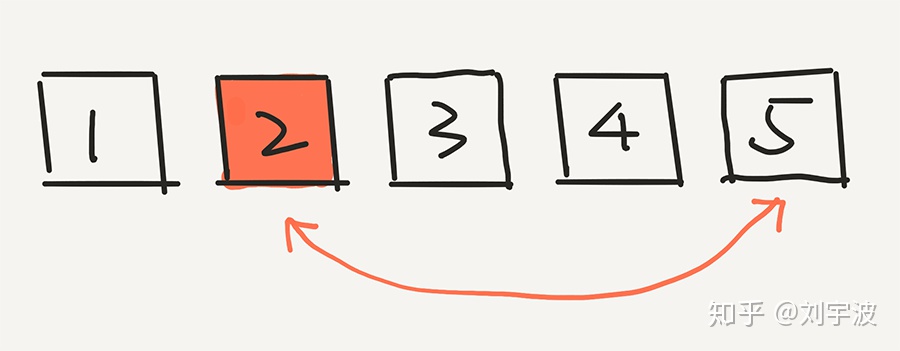 1 2 3 4 5
知乎 @刘宇波